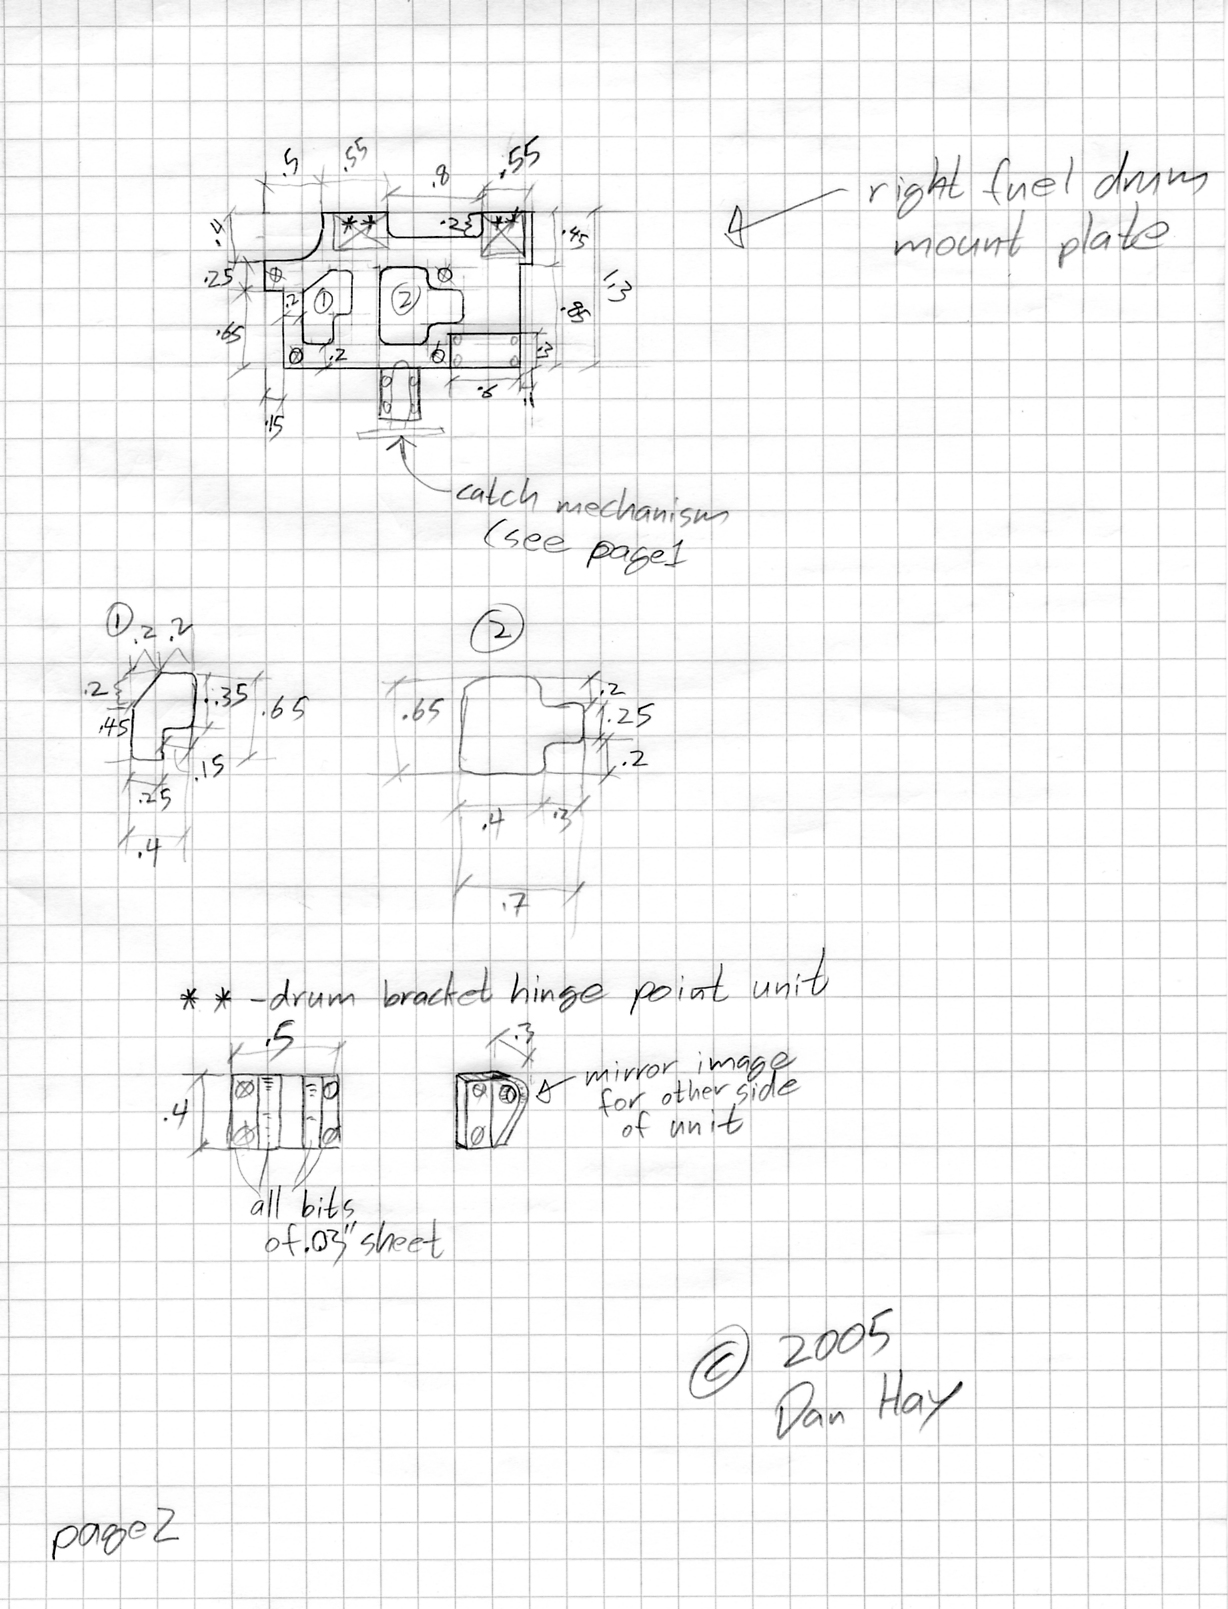 .5 .55 .8 .55
right fuel drum
mount plate
.4 ** .2 ** .45
.25
.2 1 2 .85 1.3
.65
.2 .3
.6 .1
.15
catch mechanism
(see page1
1 .2 .2 2
.2 .35 .65 .65 .2
.45 .25
.15 .2
.25 .4 .3
.4
.7
** -drum bracket hinge point unit
.5 .3
mirror image
for other side
of unit
.4
all bits
of .03" sheet
© 2005
Dan Hay
page2